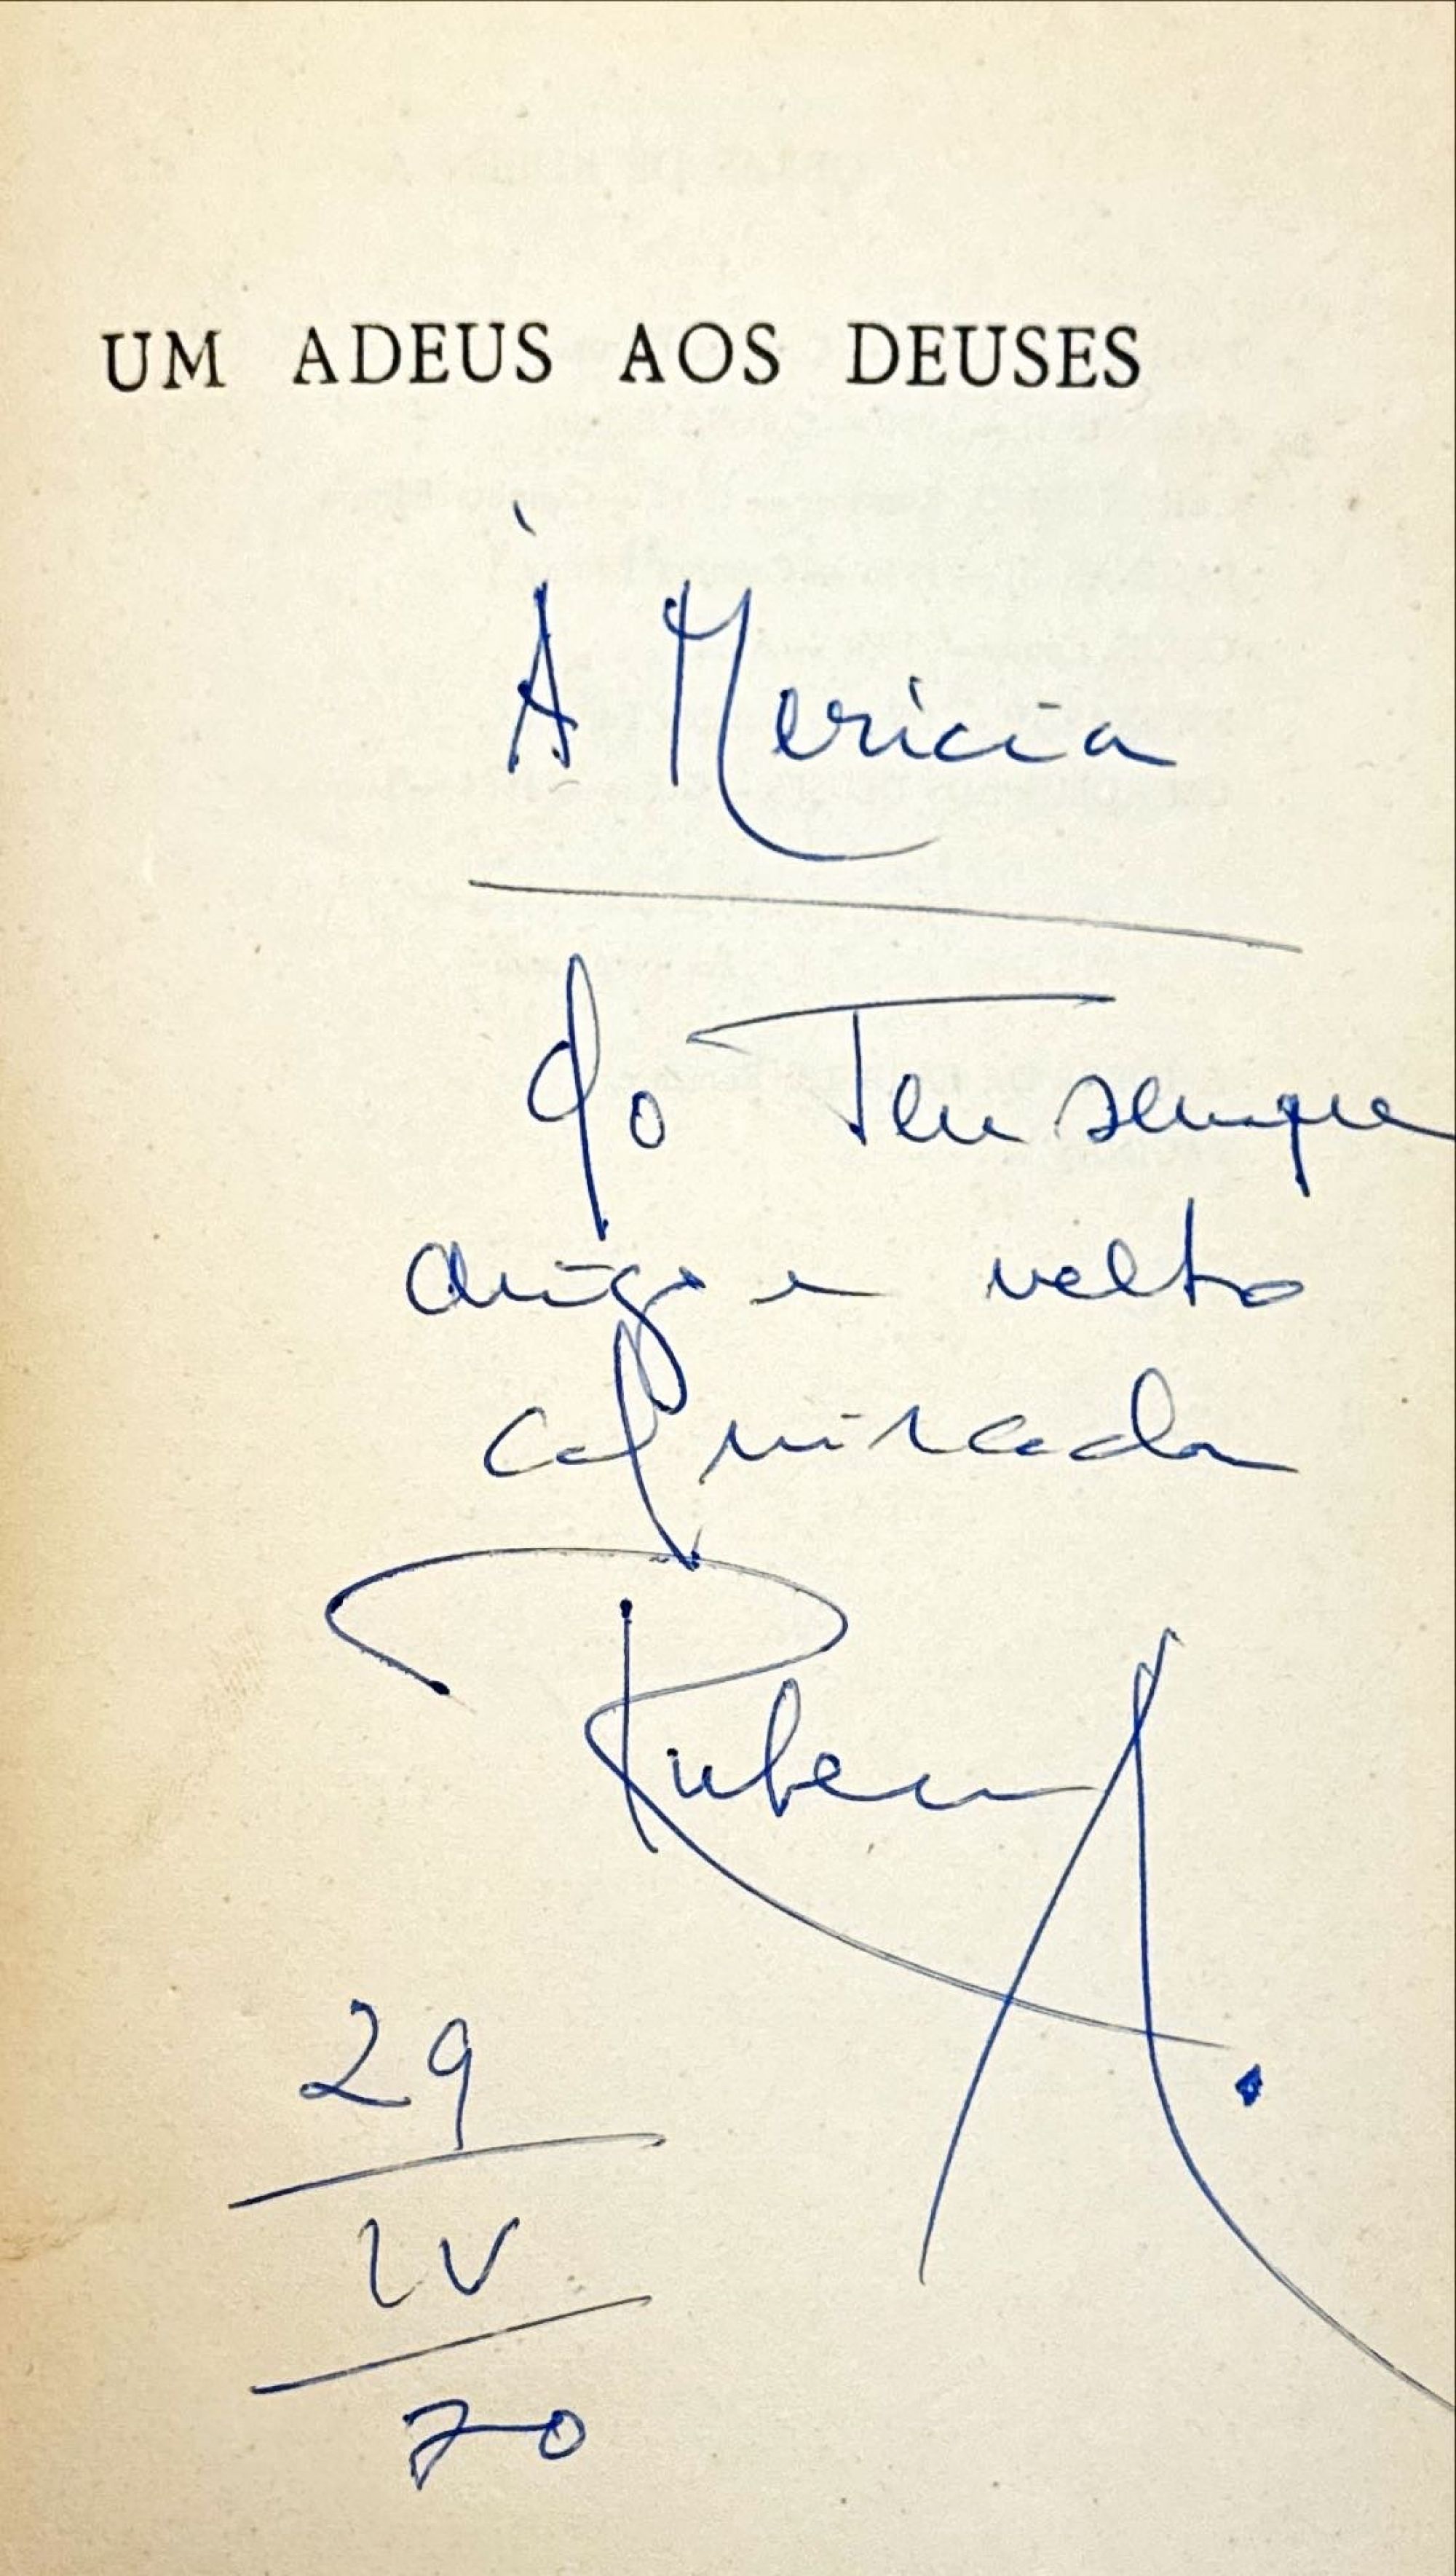 UM ADEUS AOS DEUSES
À Mericia
do Teu sempre
amigo e velho
admirador
Ruben A.
29
IV
70